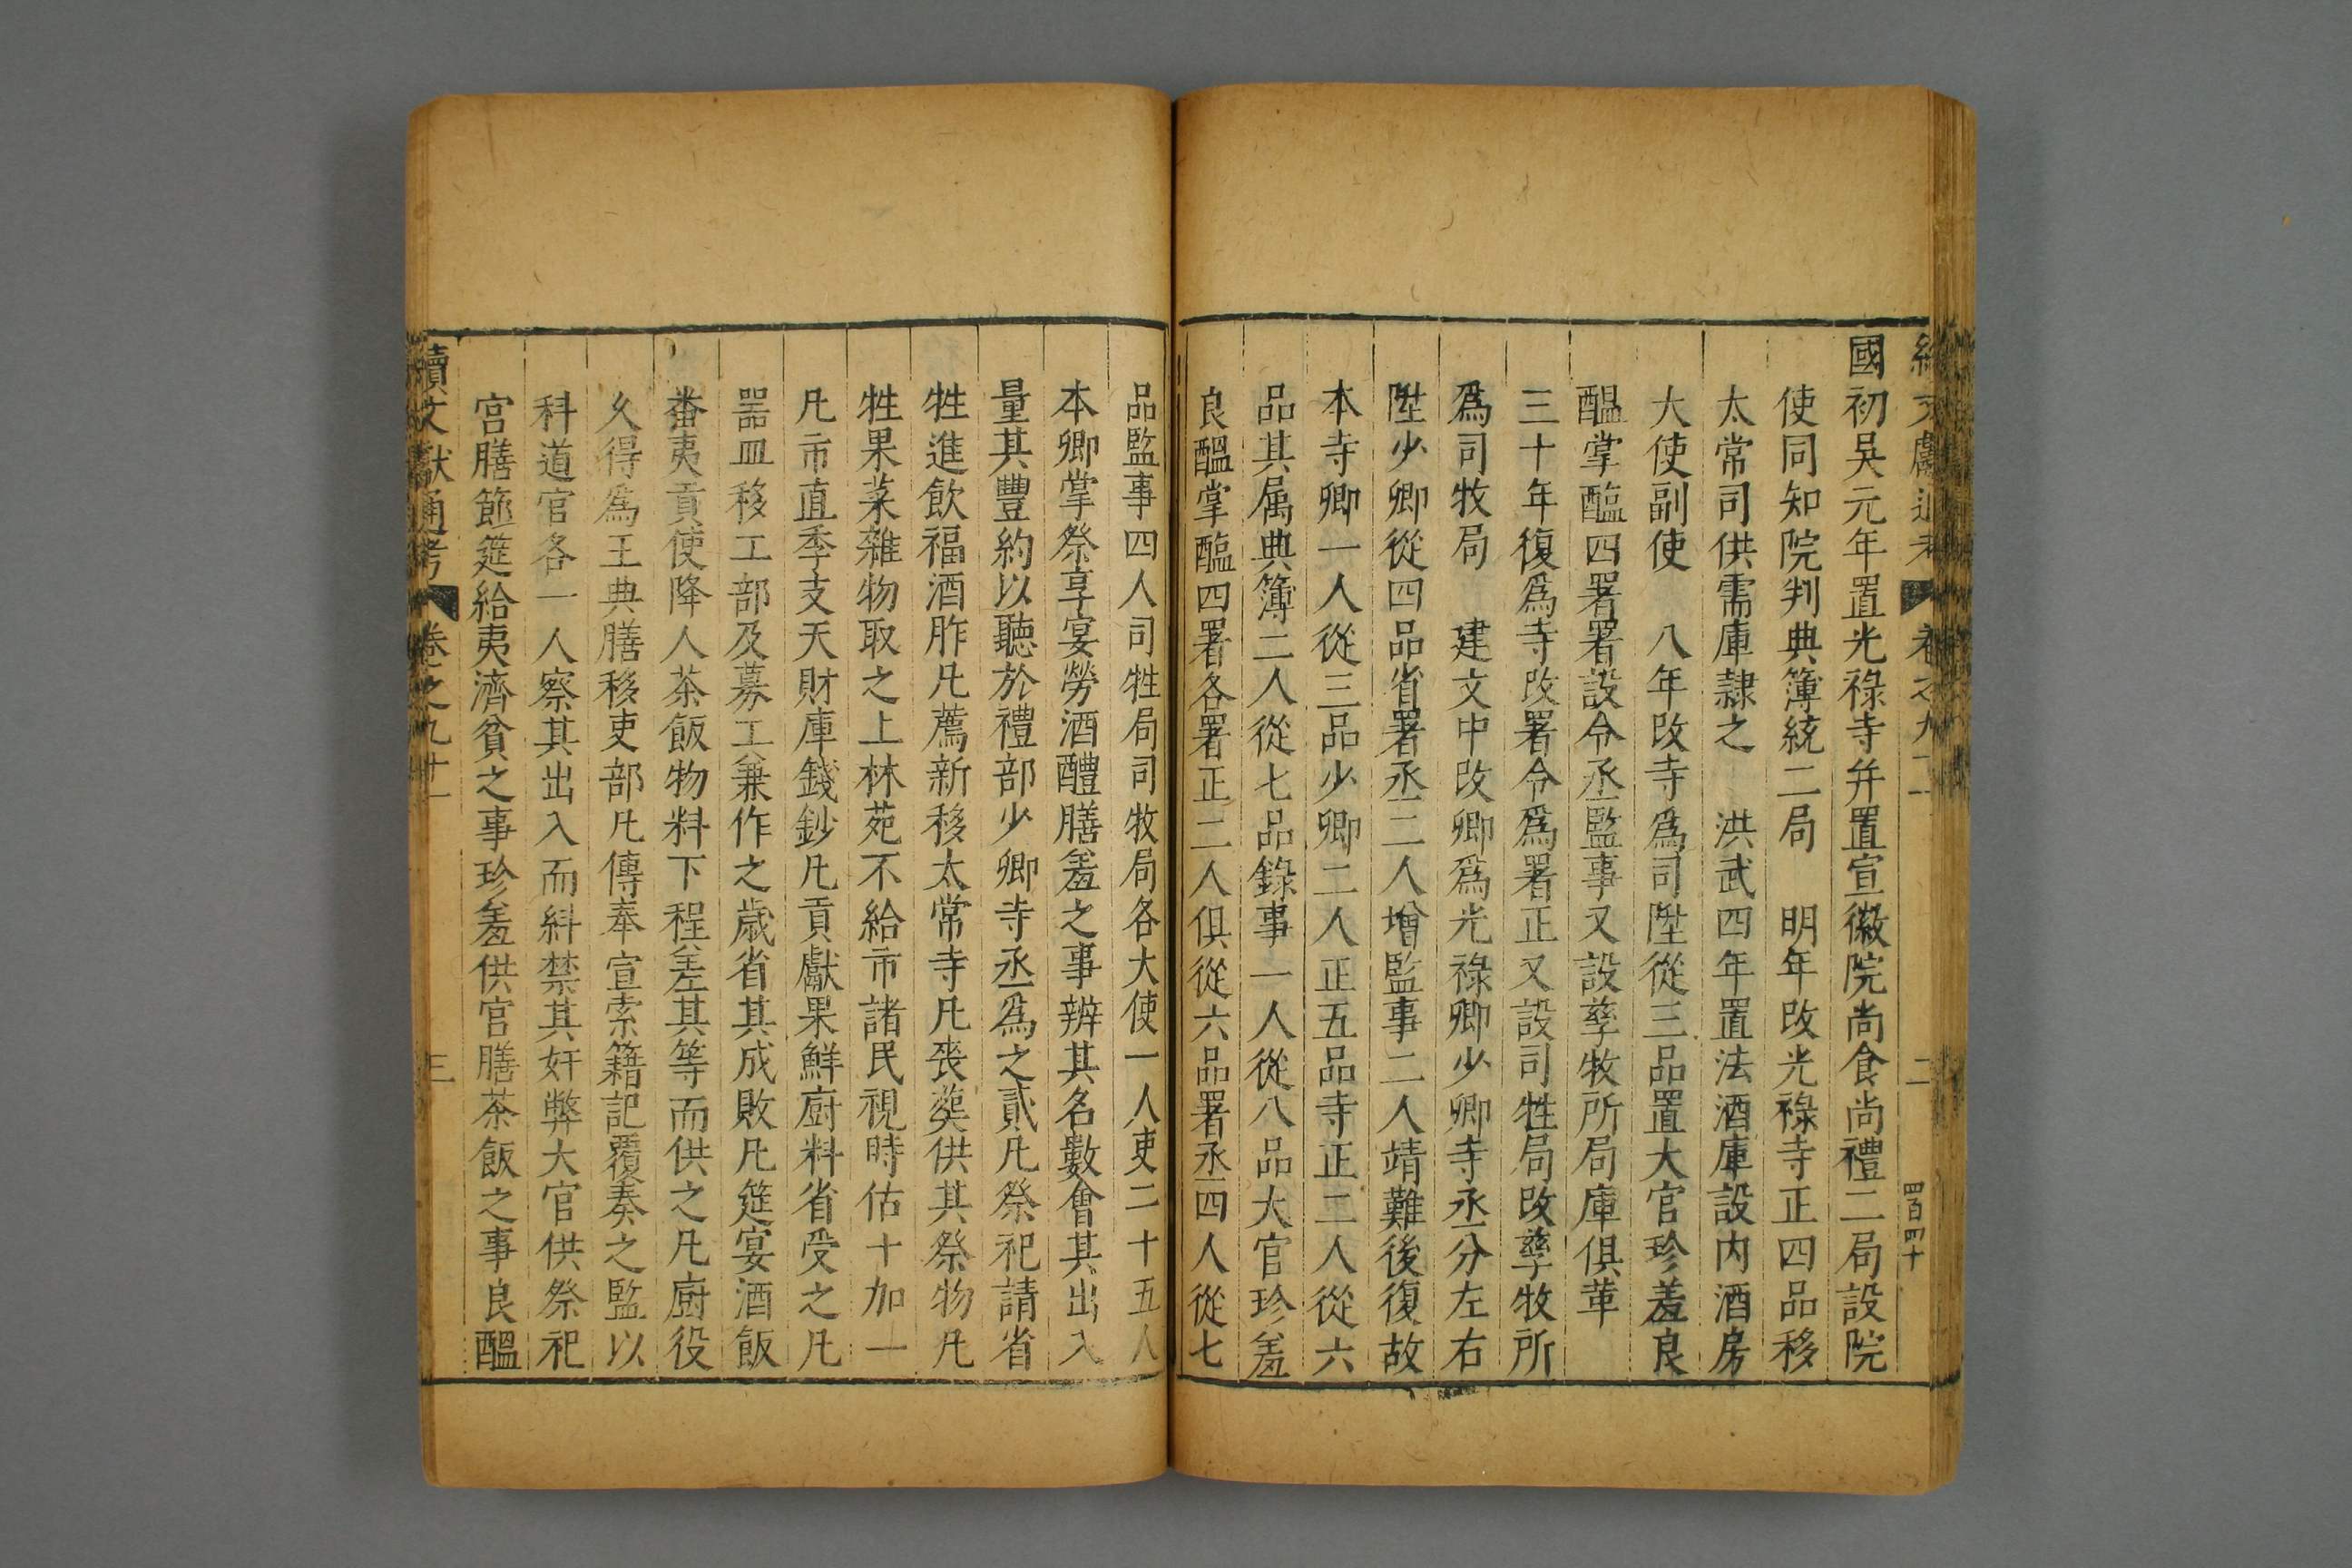 續文獻通考 卷之九十一 二 四百四十
國初吳元年置光祿寺并置宣徽院尚食尚禮二局設院
使同知院判典簿統二局 明年改光祿寺正四品移
太常司供需庫隷之 洪武四年置法酒庫設内酒房
大使副使 八年改寺爲司陞從三品置大官珍羞良
醞掌醢四署署設令丞監事又設孳牧所局庫俱革
三十年復爲寺改署令爲署正又設司牲局改孳牧所
爲司牧局 建文中改卿爲光祿卿少卿寺丞分左右
陞少卿從四品省署丞二人增監事二人靖難後復故
本寺卿一人從三品少卿二人正五品寺正二人從六
品其属典簿二人從七品錄事一人從八品大官珍羞
良醞掌醢四署各署正二人俱從六品署丞四人從七
品監事四人司牲局司牧局各大使一人吏二十五人
本卿掌祭享宴勞酒醴膳羞之事辨其名數會其出入
量其豐約以聽於禮部少卿寺丞爲之貳凡祭祀請省
牲進飲福酒胙凡薦新移太常寺凡喪葬供其祭物凡
牲果菜雜物取之上林苑不給市諸民視時估十加一
凡市直季支天財庫錢鈔凡貢獻果鮮厨料省受之凡
噐皿移工部及募工兼作之歲省其成敗凡筵宴酒飯
番夷貢使降人茶飯物料下程差其等而供之凡廚役
久得爲王典膳移吏部凡傳奉宣索籍記覆奏之監以
科道官各一人察其出入而糾禁其奸弊大官供祭祀
宮膳節筵給夷濟貧之事珍羞供宮膳茶飯之事良醞
續文獻通考 卷之九十一 三